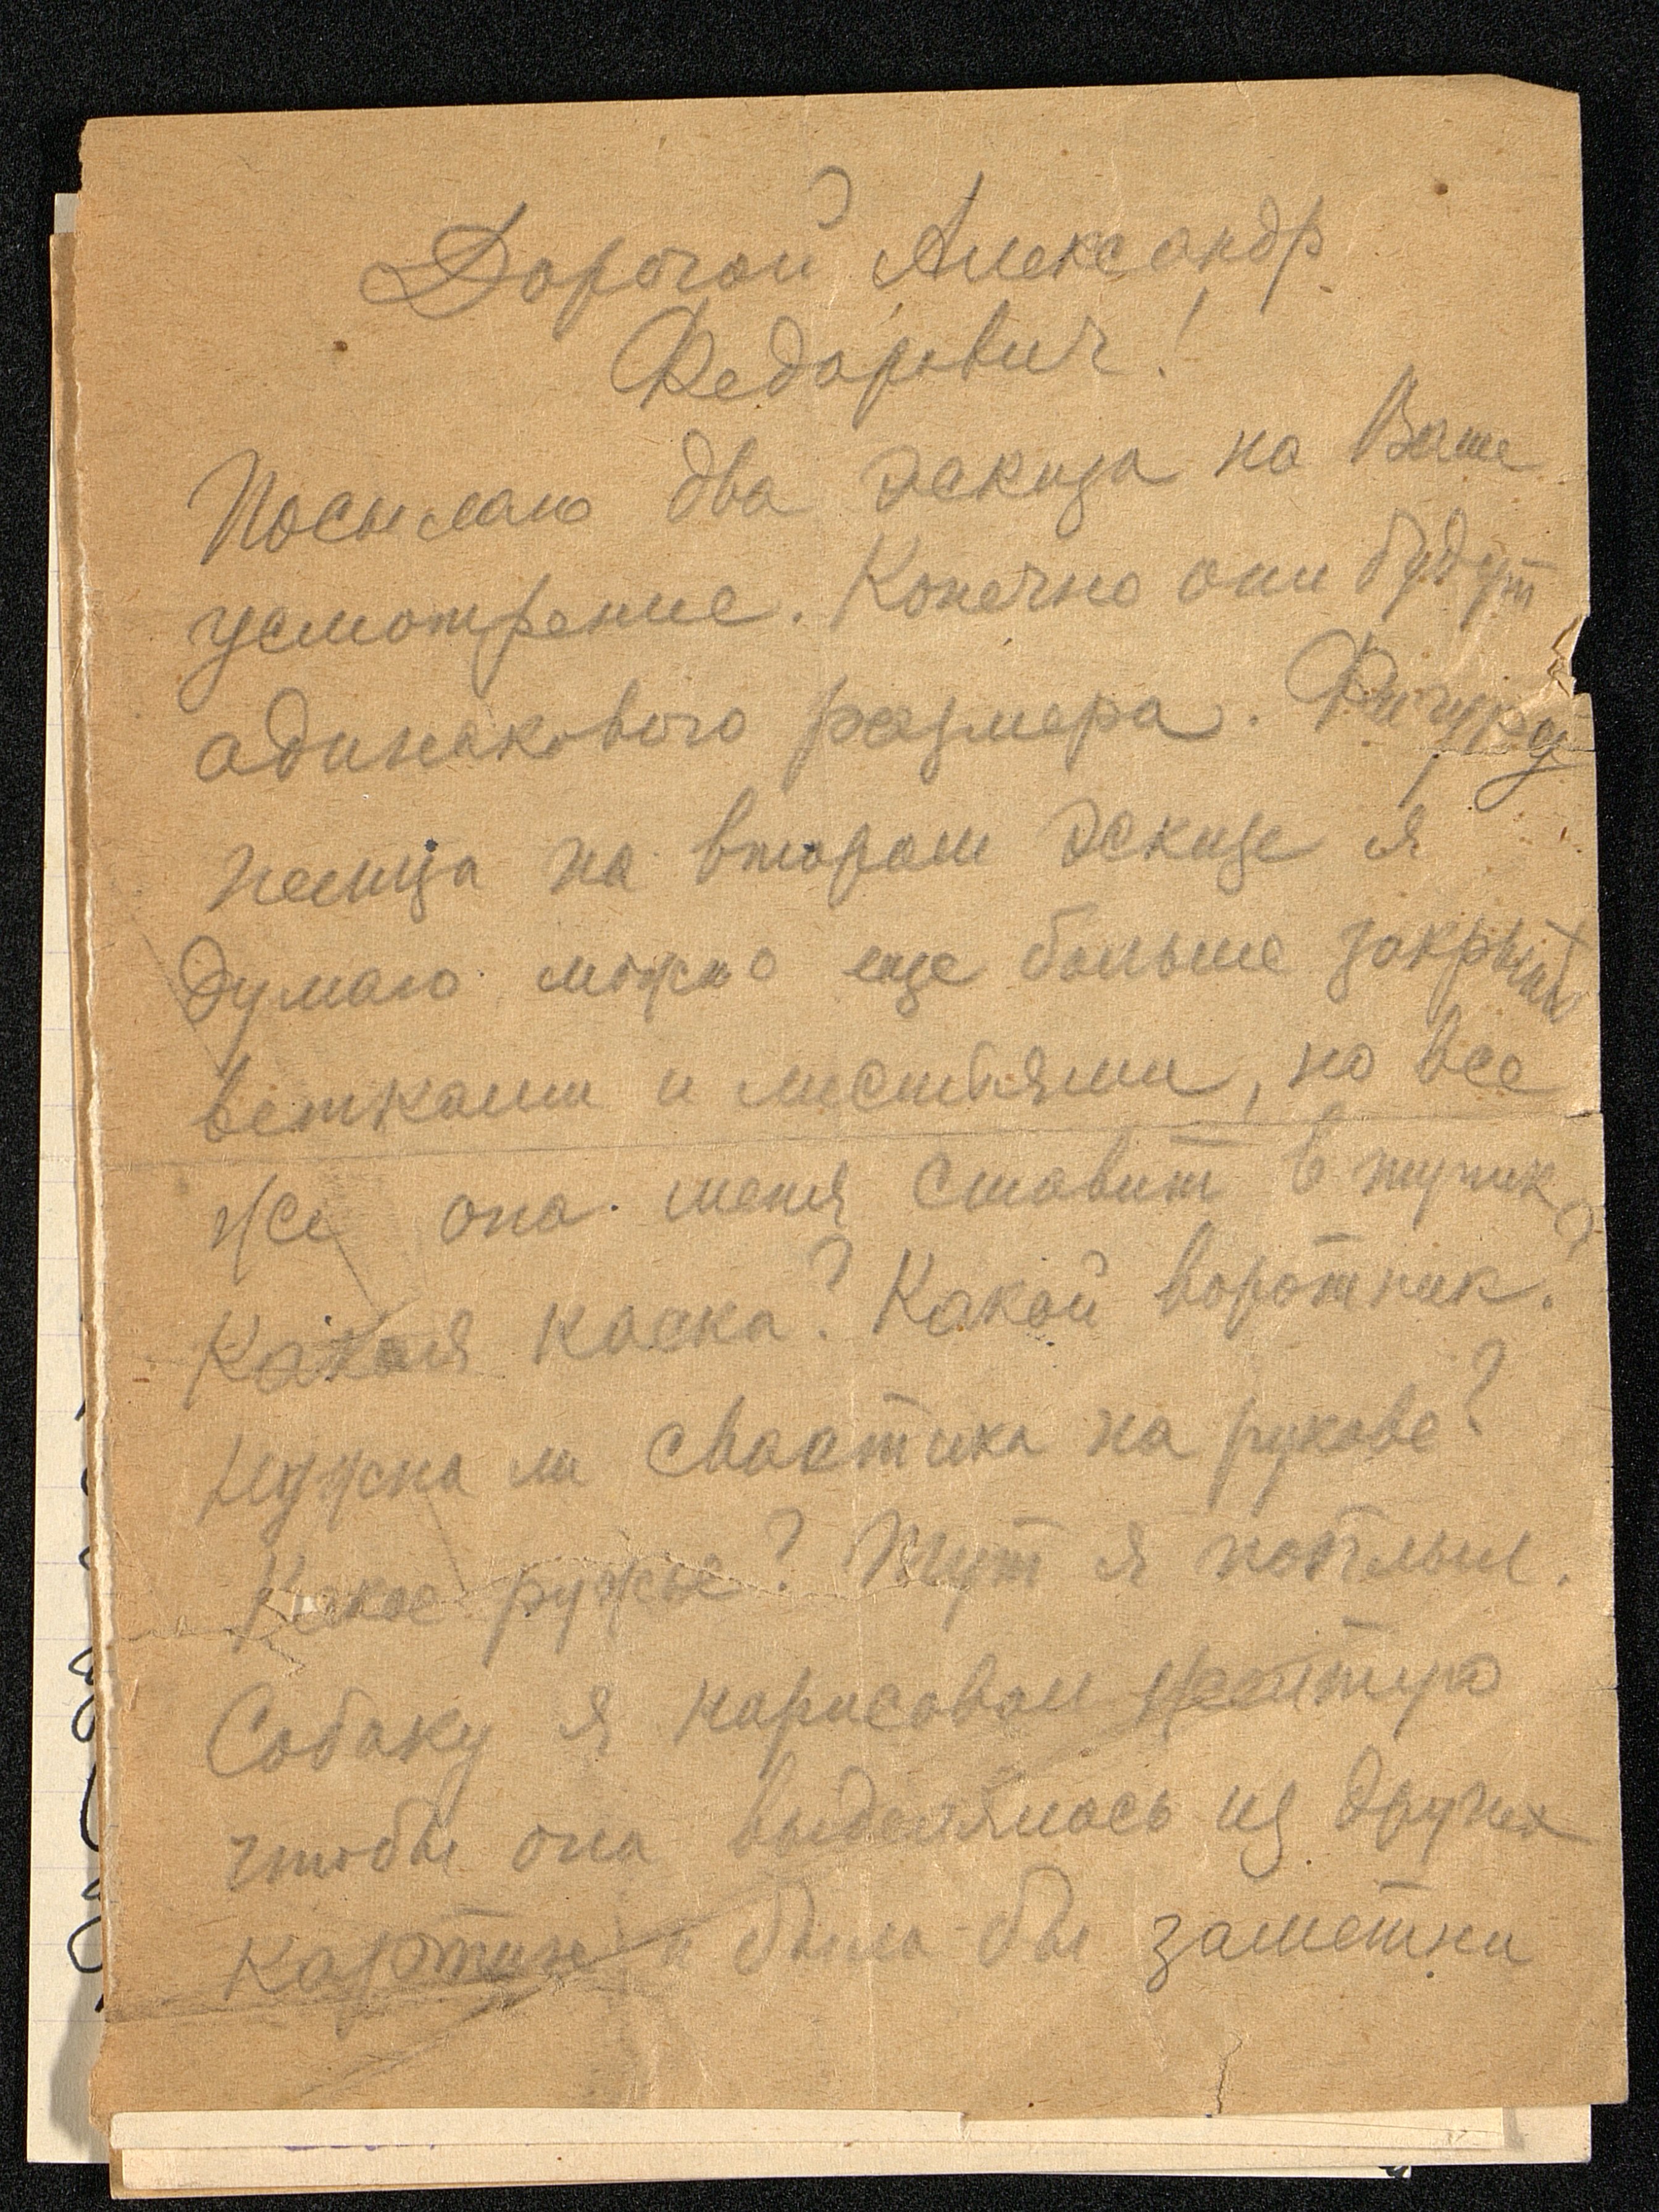 Дорогой Александр
Федорович!
Посылаю два эскиза на Ваше
усмотрение. Конечно они будут
одинакового размера. Фигура
немца на втором эскизе я
думаю можно еще больше закрыть
ветками и листьями, но все
же она меня ставит в тупик
Какая каска? Какой воротник?
Нужна ли свастика на рукаве?
Какое ружье? Тут я поплыл.
Собаку я нарисовал желтую
чтобы она выделялась из других
картин и была бы заметны